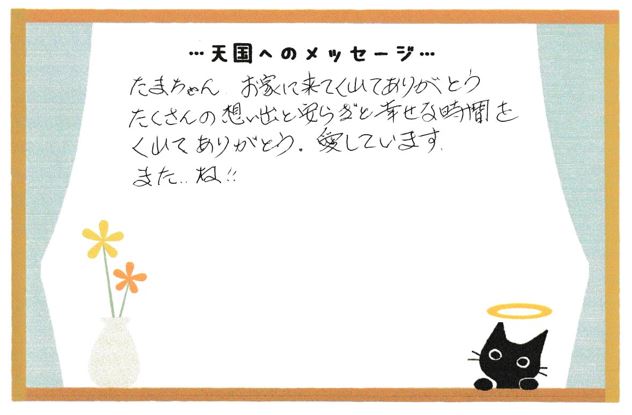 …天国へのメッセージ…
たまちゃん お家に来てくれてありがとう
たくさんの想い出と安らぎと幸せな時間を
くれてありがとう。愛しています。
また..ね!!